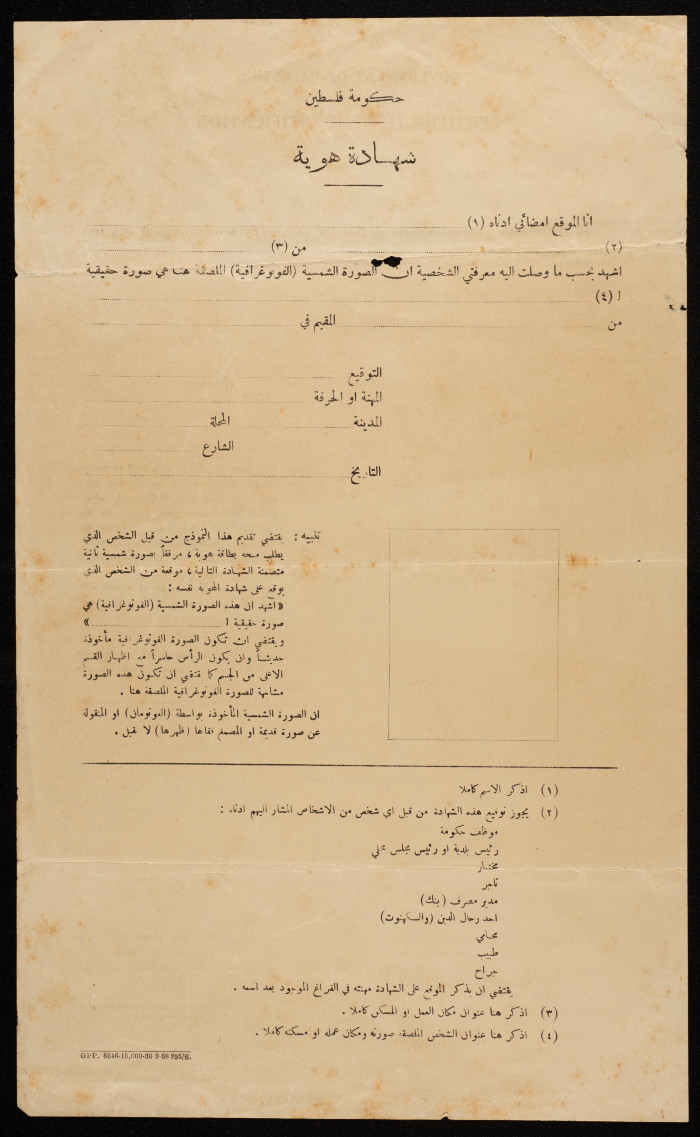 حكومة فلسطين
شهادة هوية
انا الموقع امضائي ادناه (١)
(٢) من (٣)
اشهد بحسب ما وصلت اليه معرفتي الشخصية ان الصورة الشمسية (الفوتوغرافية) الملصقة هنا هي صورة حقيقية
ل (٤)
من المقيم في
التوقيع
المهنة او الحرفة
المدينة المحلة
الشارع
التاريخ
تنبيه : يقتضي تقديم هذا النموذج من قبل الشخص الذي
يطلب منحه بطاقة هوية ، مرفقاً بصورة شمسية ثانية
متضمنة الشهادة التالية ، موقعة من الشخص الذي
يوقع على شهادة الهوية نفسه :
« اشهد ان هذه الصورة الشمسية (الفوتوغرافية) هي
صورة حقيقية ل »
ويقتضي ان تكون الصورة الفوتوغرافية مأخوذة
حديثاً وان يكون الرأس حاسراً مع اظهار القسم
الاعلى من الجسم كما يقتضي ان تكون هذه الصورة
مشابهة للصورة الفوتوغرافية الملصقة هنا .
ان الصورة الشمسية المأخوذة بواسطة (الفوتومان) او المنقولة
عن صورة قديمة او المصمغ قفاها (ظهرها) لا تقبل .
(١) اذكر الاسم كاملا
(٢) يجوز توقيع هذه الشهادة من قبل اي شخص من الاشخاص المشار اليهم ادناه :
موظف حكومة
رئيس بلدية او رئيس مجلس محلي
مختار
تاجر
مدير مصرف (بنك)
احد رجال الدين (والكهنوت)
محامي
طبيب
جراح
يقتضي ان يذكر الموقع على الشهادة مهنته في الفراغ الموجود بعد اسمه .
(٣) اذكر هنا عنوان مكان العمل او المسكن كاملا .
(٤) اذكر هنا عنوان الشخص الملصقة صورته ومكان عمله او مسكنه كاملا .
GPP. 6646-15,000-30-9-38 895/S.